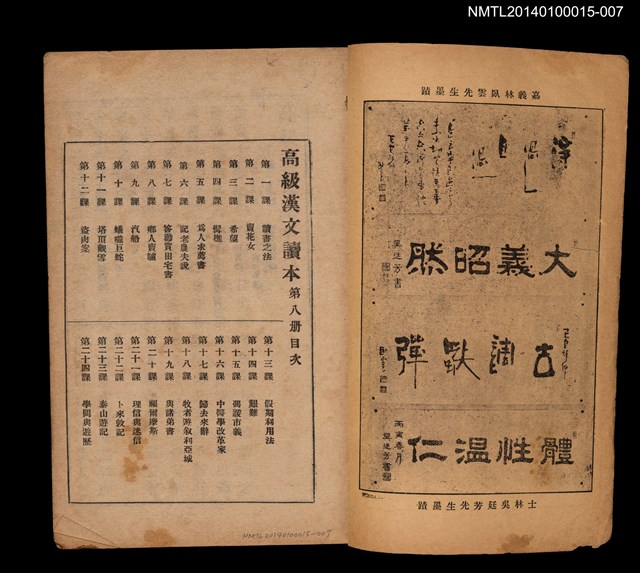 NMTL20140100015-007
嘉義林臥雲先生墨蹟
大義昭然
吳廷芳書
古調獸彈
體性溫仁
丙寅春月
吳廷芳書
士林吳廷芳先生墨蹟
高級漢文讀本 第八册目次
第一課 讀書之法
第二課 賣花女
第三課 希望
第四課
第五課 爲人求薦書
第六課 記老農夫說
第七課 答勸買田宅書
第八課 鄉人賣驢
第九課 汽船
第十課 蟻嘬巨蛇
第十一課 塔頂觀雪
第十二課 盜肉案
第十三課 假期利用法
第十四課 艱難
第十五課 馮諼市義
第十六課 中醫學改革家
第十七課 歸去來辭
第十八課 牧者遊敘利亞城
第十九課 與諸弟書
第二十課 福爾摩斯
第二十一課 理信與迷信
第二十二課 卜來敦記
第二十三課 泰山遊記
第二十四課 學問與遊歷
NMTL20140100015-007